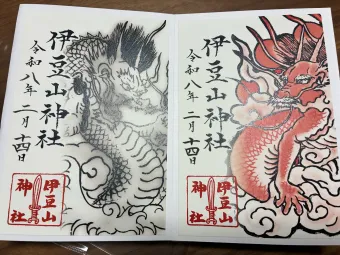 伊豆山神社
令和八年二月十四日
伊豆山
神社
伊豆山神社
令和八年二月十四日
伊豆山
神社